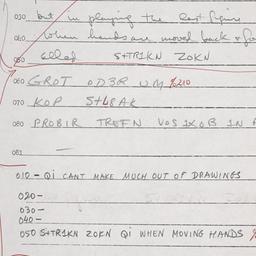 030 but in playing the last figure
040 when hands are moved back &
050 S+TR1KN ZOKN
060 GROT OD3R UM %210
070 KOP S+L8AK
080 PROBIR TREFN VOS 1XOB 1N
081 —
010 - Qi CANT MAKE MUCH OUT OF DRAWINGS
020 -
030 -
040 -
050 S+TR1KN ZOKN Qi WHEN MOVING HANDS